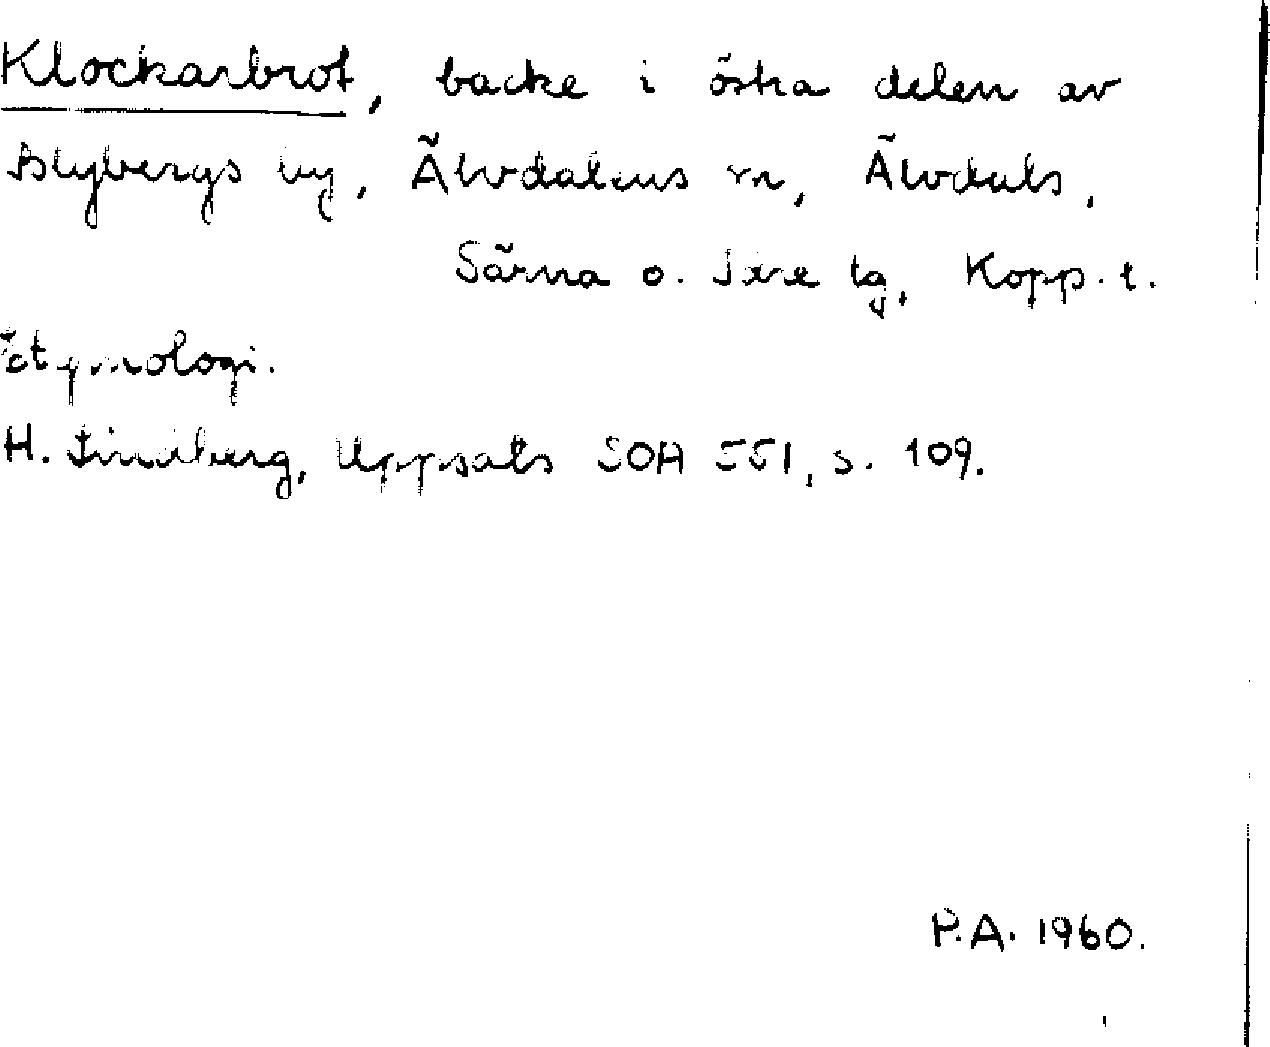 Klockarbrot, backe i östra delen av
Blybergs by, Älvdalens sn, Älvdals,
Särna o. Idre tg, Kopp. l.
Etymologi.
H. Lindberg, Uppsats SOA 551, s. 109.
P.A. 1960.